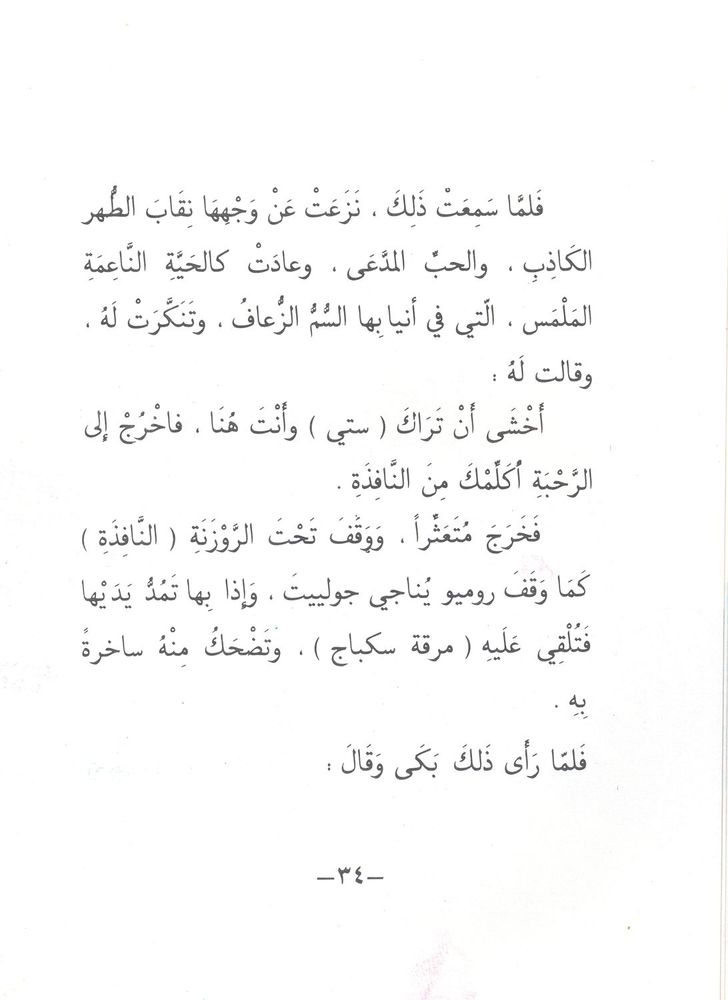 فَلمَّا سَمِعَتْ ذَلِكَ ، نَزَعَتْ عَنْ وَجْهِهَا نِقَابَ الطُّهر
الكَاذِبِ ، والحبِّ المدَّعَى ، وعادَتْ كالحَيَّةِ النَّاعِمَةِ
المَلْمَس ، الّتي في أنيابِها السُّمُّ الزُّعافُ ، وتَنَكَّرَتْ لَهُ ،
وقالت لَهُ :
أَخْشَى أَنْ تَرَاكَ ( ستي ) وأَنْتَ هُنَا ، فاخْرُجْ إلى
الرَّحْبَةِ أُكَلِّمْكَ مِنَ النَّافِذَةِ .
فَخَرَجَ مُتَعَثِّراً ، وَوَقَفَ تَحْتَ الرَّوْزَنَةِ ( النَّافِذَةِ )
كَمَا وَقَفَ روميو يُناجي جولييتَ ، وَإذا بِها تَمُدُّ يَدَيْها
فَتُلْقِي عَلَيهِ ( مرقة سكباج ) ، وَتَضْحَكُ مِنْهُ ساخرةً
بِهِ .
فَلمّا رَأَى ذَلكَ بَكَى وَقَالَ :
—٣٤—